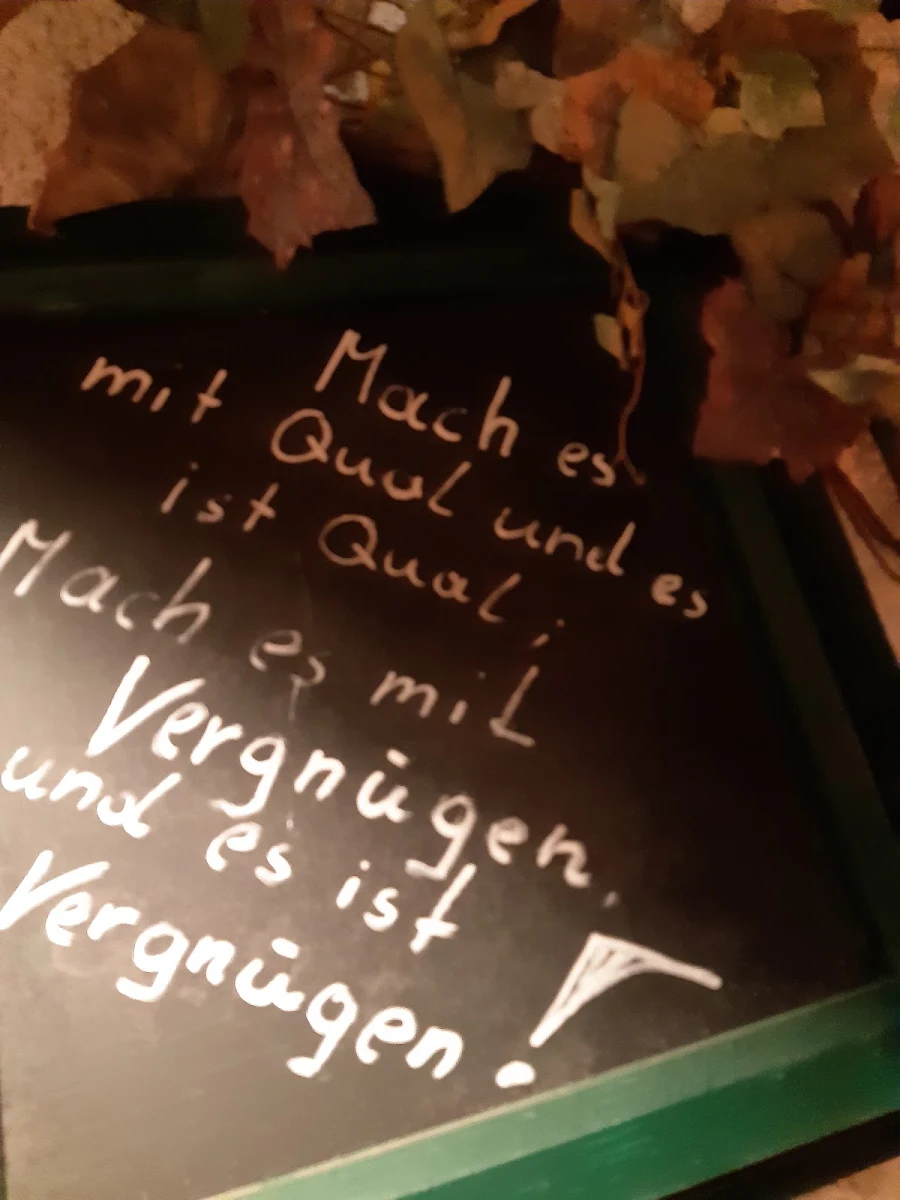 Mach es
mit Qual und es
ist Qual;
Mach es mit
Vergnügen,
und es ist
Vergnügen!